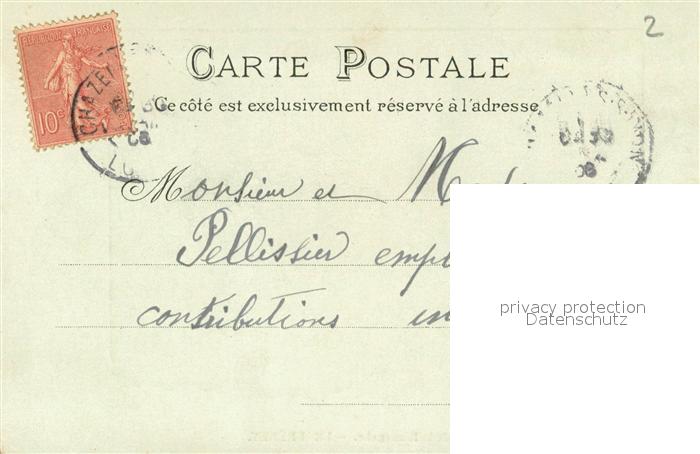 2
REPUBLIQUE FRANÇAISE
10
CHAZEL
CARTE POSTALE
Ce côté est exclusivement réservé à l'adresse
Monsieur et
Pellissier
contributions
privacy protection
Datenschutz